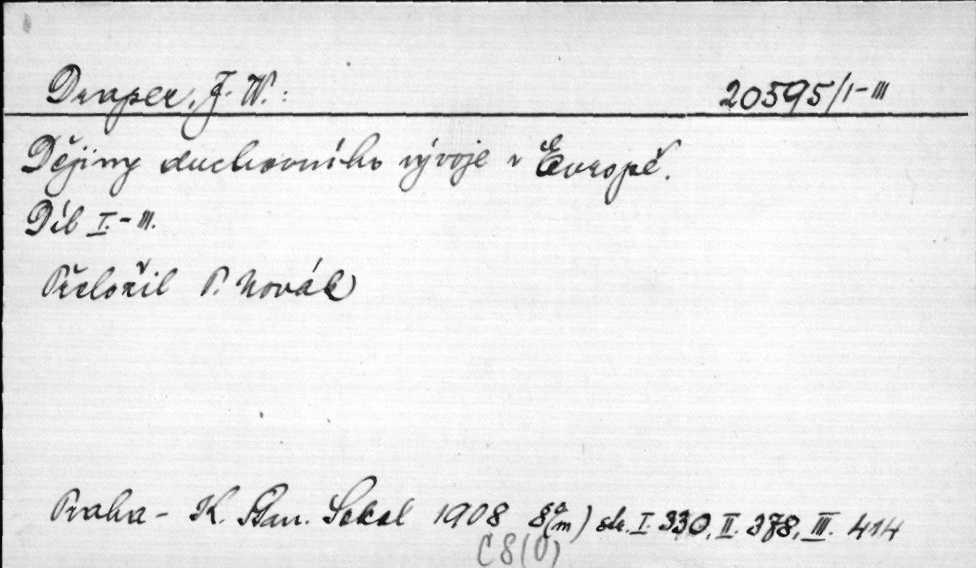 Draper, J. W.: 20595/I-III
Dějiny duchovního vývoje v Evropě.
Díl I.-III.
Přeložil P. Novák
Praha - K. Stan. Sokol 1908 8°(m) str. I. 330, II. 378, III. 414
C 8(0)